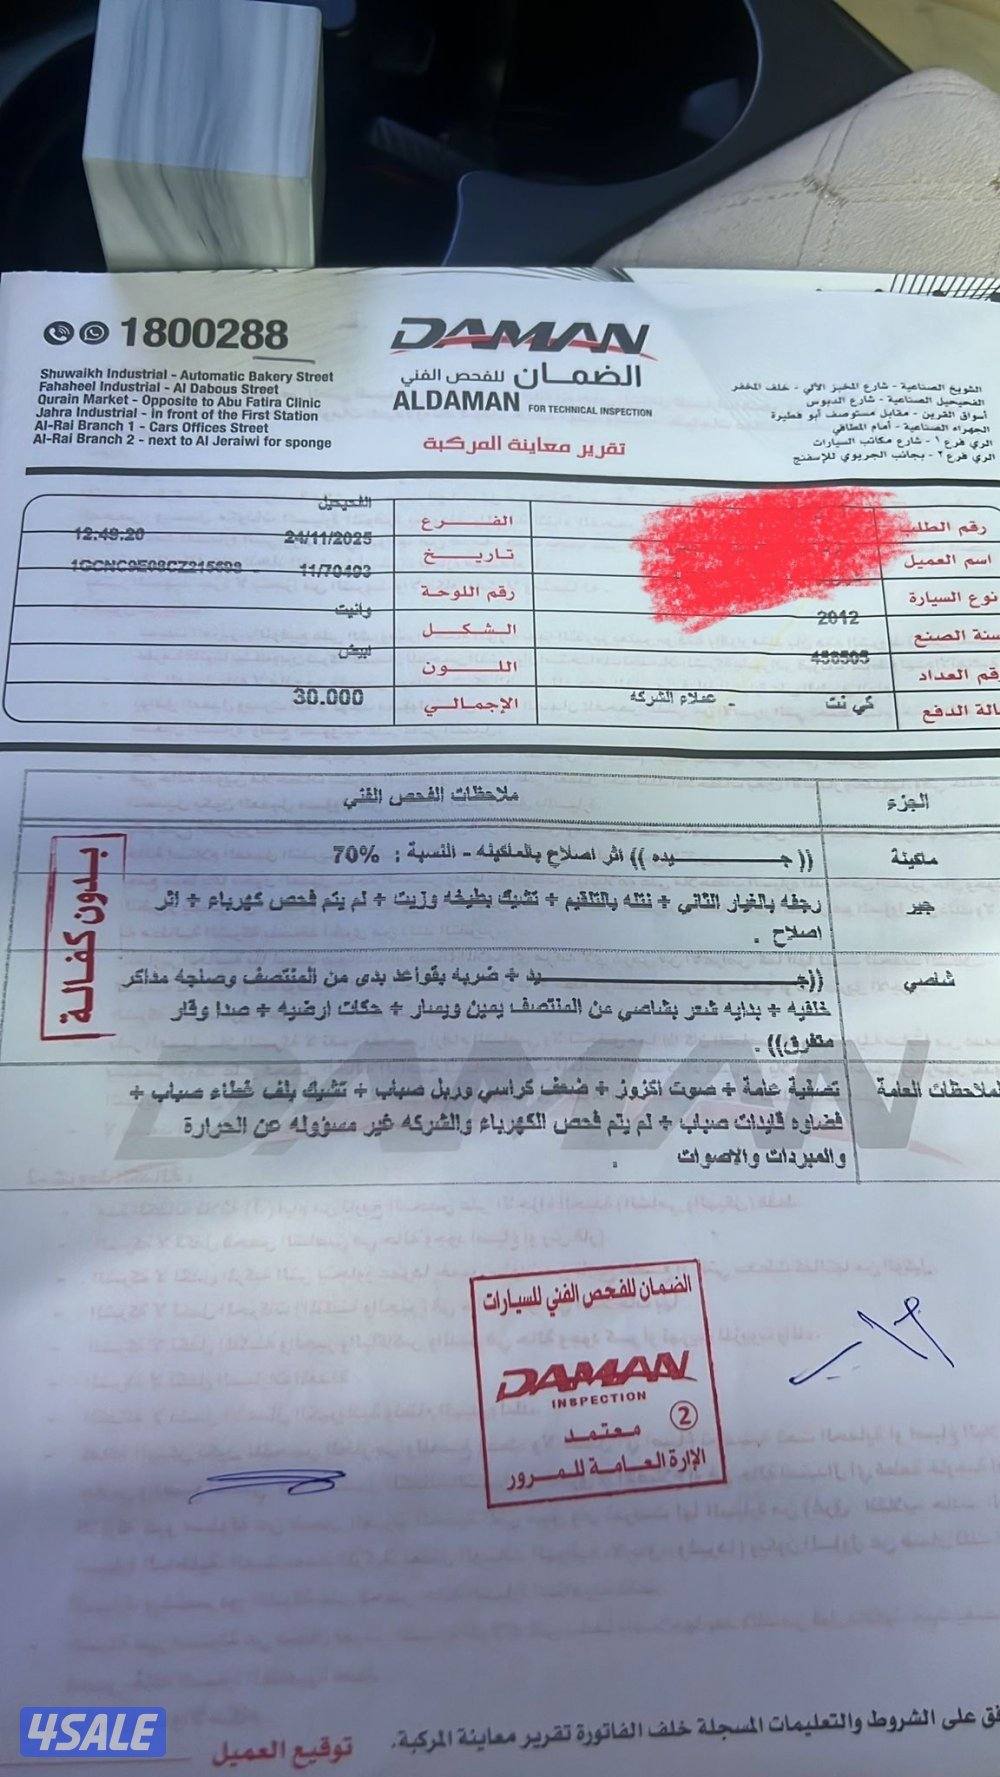 1800288
Shuwaikh Industrial - Automatic Bakery Street
Fahaheel Industrial - Al Dabous Street
Qurain Market - Opposite to Abu Fatira Clinic
Jahra Industrial - in front of the First Station
Al-Rai Branch 1 - Cars Offices Street
Al-Rai Branch 2 - next to Al Jeraiwi for sponge
DAMAN
الضمان للفحص الفني
ALDAMAN FOR TECHNICAL INSPECTION
تقرير معاينة المركبة
الشويخ الصناعية - شارع المخبز الآلي - خلف المخفر
الفحيحيل الصناعية - شارع الدبوس
أسواق القرين - مقابل مستوصف أبو فطيرة
الجهراء الصناعية - أمام المطافي
الري فرع ١ - شارع مكاتب السيارات
الري فرع ٢ - بجانب الجريوي للإسفنج
رقم الطلب
الفرع الفحيحيل
اسم العميل
تاريخ 24/11/2025 12:49:20
نوع السيارة
رقم اللوحة 11/70493
سنة الصنع 2012
الشكل وانيت
رقم العداد 456505
اللون ابيض
حالة الدفع كي نت - عملاء الشركه
الإجمالي 30.000
الجزء ملاحظات الفحص الفني
ماكينة ((جيده)) اثر اصلاح بالماكينه - النسبة : 70%
جير رجفه بالغيار الثاني + نتله بالتلقيم + تشيك بطيخه وزيت + لم يتم فحص كهرباء + اثر
اصلاح .
شاصي ((جيد + ضربه بقواعد بدى من المنتصف وصلجه مداكر
خلفيه + بدايه شعر بشاصي من المنتصف يمين ويسار + حكات ارضيه + صدا وقار
متفرق)) .
الملاحظات العامة تصفية عامة + صوت اكزوز + ضعف كراسي وربل صباب + تشيك بلف غطاء صباب +
قضاوه قايدات صباب + لم يتم فحص الكهرباء والشركه غير مسؤوله عن الحرارة
والمبردات والاصوات .
بدون كفالة
الضمان للفحص الفني للسيارات
DAMAN
INSPECTION
معتمد 2
الإدارة العامة للمرور
على الشروط والتعليمات المسجلة خلف الفاتورة تقرير معاينة المركبة.
توقيع العميل
4SALE